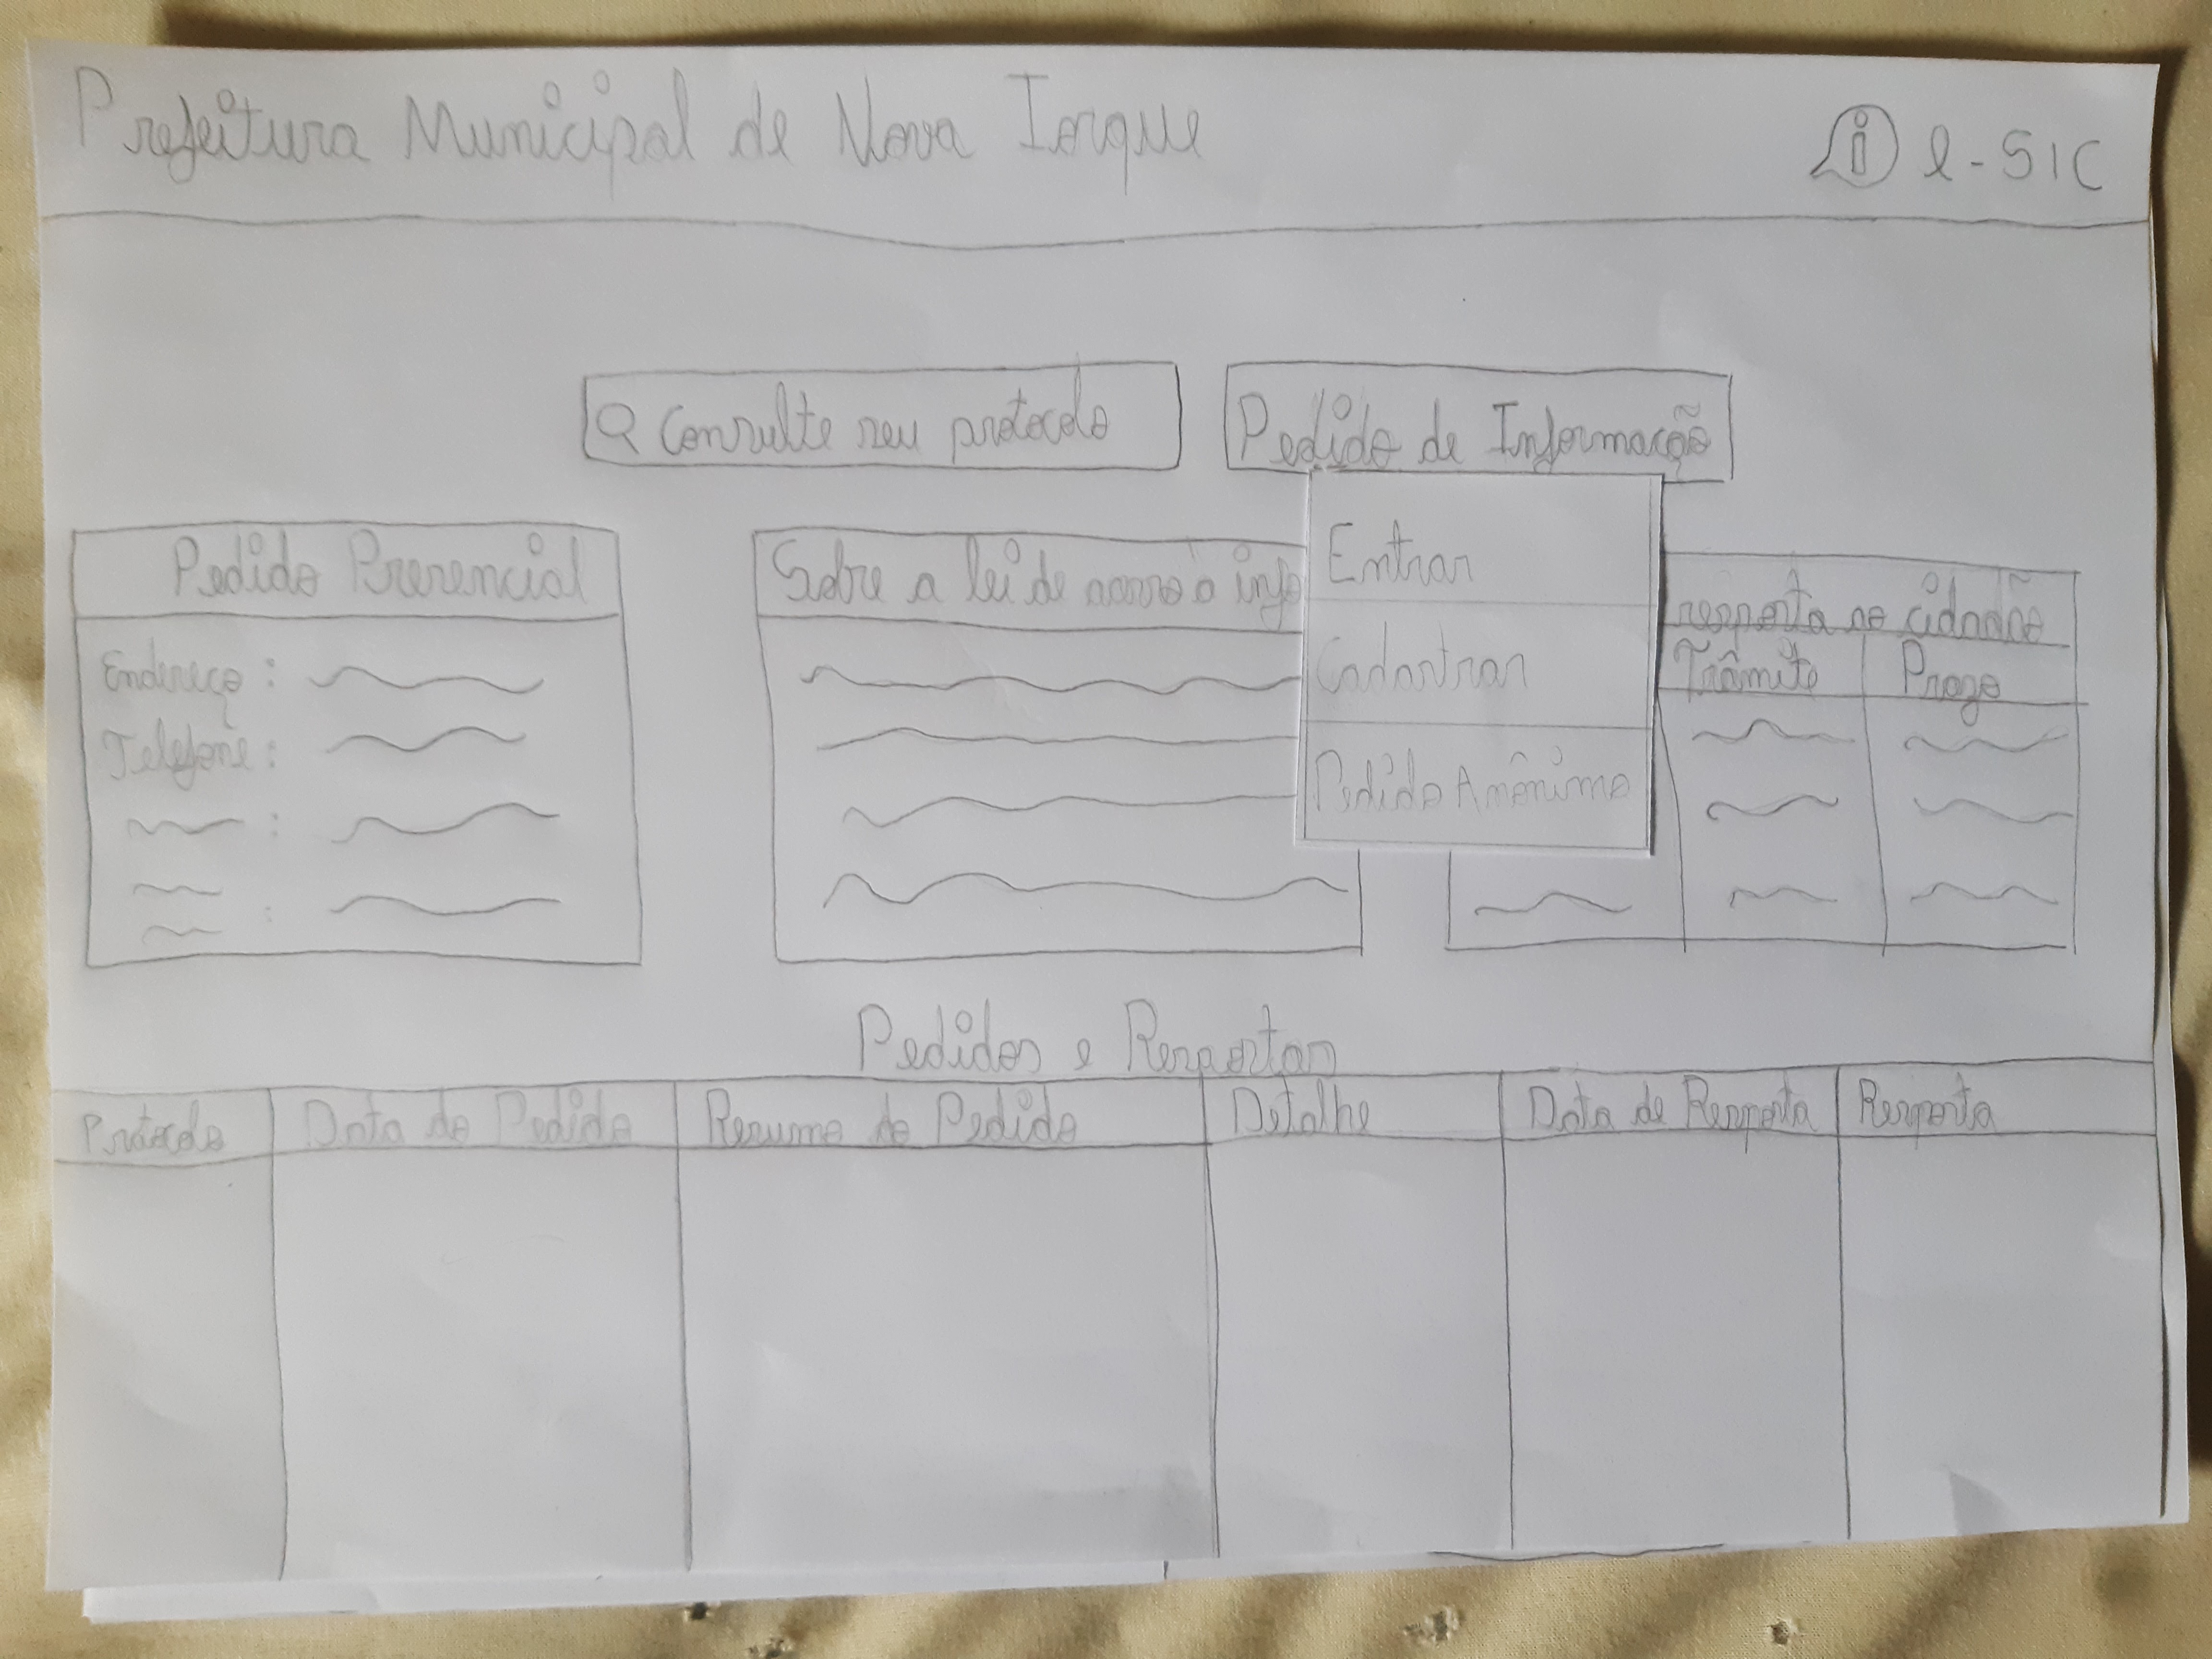 Prefeitura Municipal de Nova Iorque
i e-SIC
Consulte seu protocolo
Pedido de Informação
Entrar
Cadastrar
Pedido Anônimo
Pedido Presencial
Endereço :
Telefone :
Sobre a lei de acesso a info
resposta ao cidadão
Trâmite Prazo
Pedidos e Respostas
Protocolo Data do Pedido Resumo do Pedido Detalhe Data de Resposta Resposta